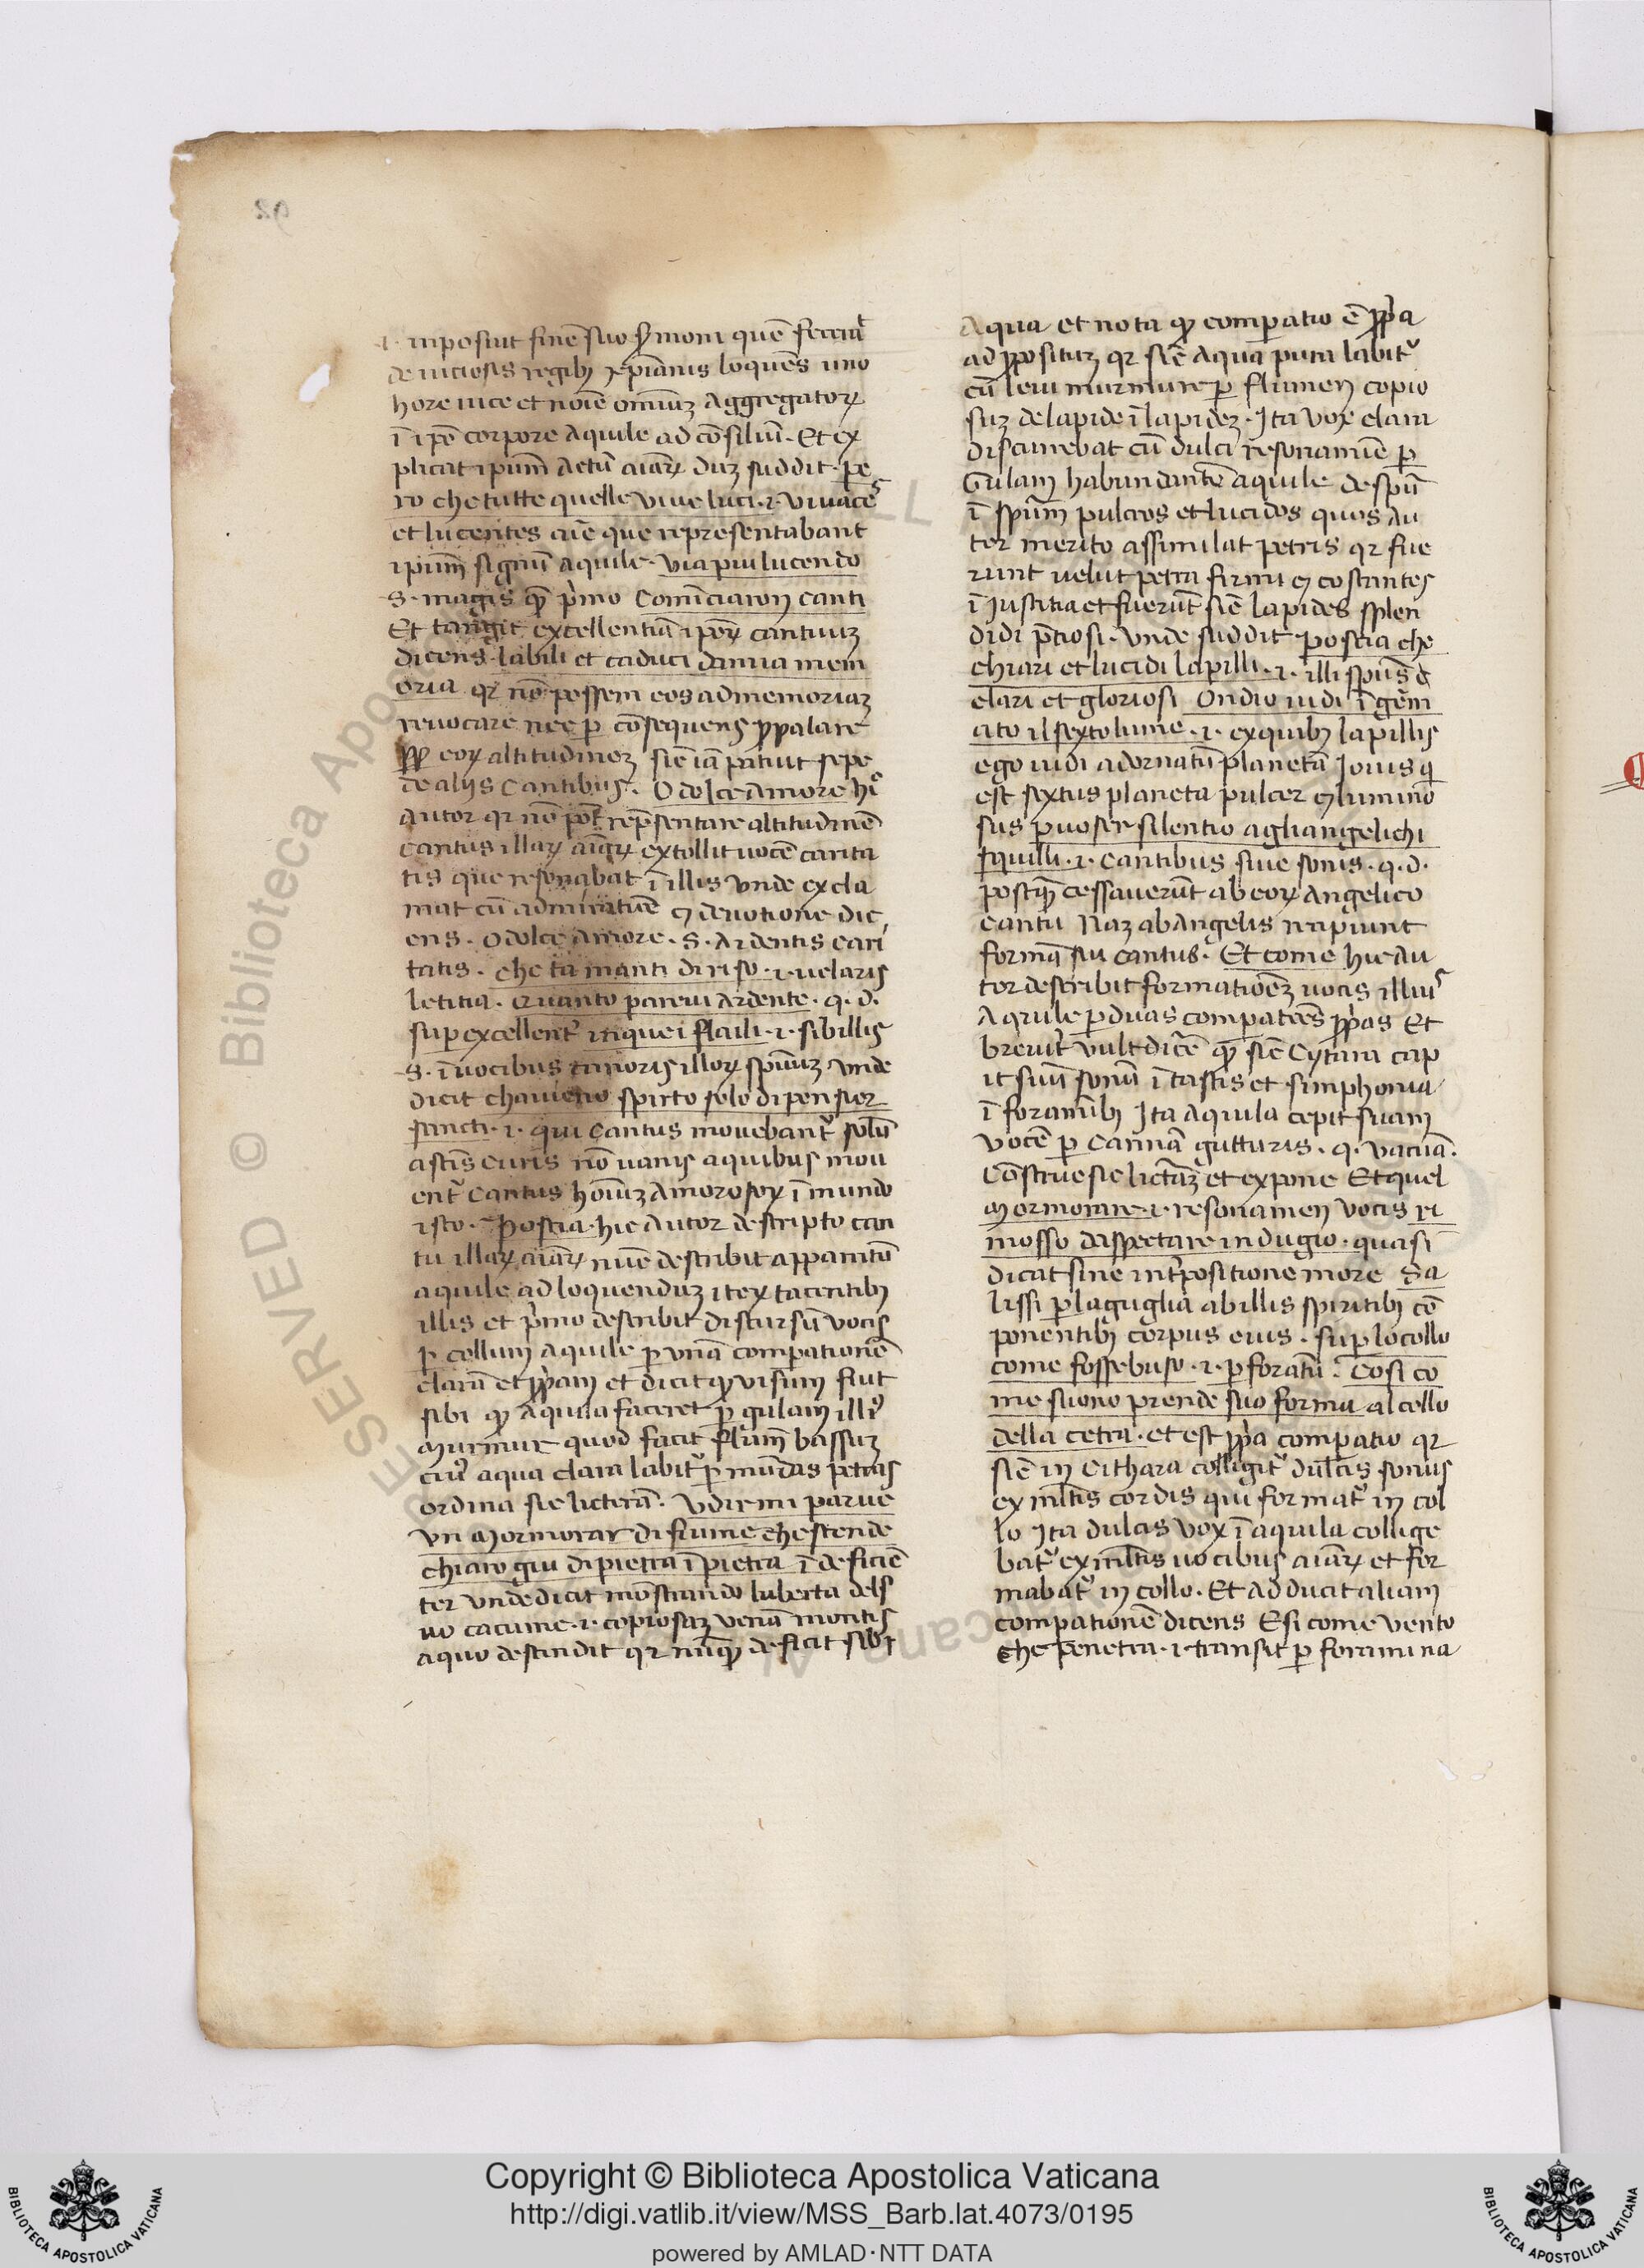 inposuit finē suo ẜmoni quē fecerat
de uiciosis regibꝫ xp̄ianis loquēs uno
hore uice et noīe omniuꝫ Aggregatoꝝ
ī ip̄o corpore Aquile ad cōsiliū. Et ex
plicat ipsum actū aīaꝝ duꝫ subdit. pe
ro che tutte quelle vive luci .i. vivaces
et lucentes aīe que representabant
ipsum signū Aquile. via piu lucendo
S. magis qͣ primo Cominciaron canti
Et tangit excellentiā ip̄oꝝ cantuuꝫ
dicens. labili et caduci da mia mem
oria qr̄ nō possem eos ad memoriaꝫ
revocare nec ꝑ cōsequens ꝓpalare
ꝓpter eoꝝ altitudineꝫ sic̄ iā patuit sepe
de aliis Cantibus. O dolce Amore hic
Autor qr̄ nō pōt rep̄sentare altitudinē
cantus illaꝝ aīaꝝ extollit vocē carita
tis que resonabat ī illis vnde excla
mat cū admiratiōe et devotione dic
ens. O dolce Amore. S. Ardentis cari
tatis. che ta manti di riso .i. velaris
letitia. Quanto parevi Ardente. q. d.
suꝑexcellenter
S. ī vocibus illoꝝ spirituuꝫ vnde
dicit chavieno spirto solo di pensier
sancti .i. qui Cantus movebantᷣ solū
a sc̄is curis nō vanis a quibus mou
entᷣ Cantus hoīuꝫ Amorosoꝝ ī mundo
isto. Poscia. hic Autor descripto can
tu illaꝝ aīaꝝ nunc describit apparatū
aquile ad loquenduꝫ iteꝝ tacentibꝫ
illis et primo describit discursū vocis
ꝑ collum Aquile ꝑ vnā comparationē
claram et ꝓpriam et dicit ꝙ visum fuit
sibi ꝙ Aquila faceret ꝑ gulam illiꝰ
Murmur quod facit flumē bassuꝫ
cuiꝰ aqua clara labitᷣ ꝑ mundas petras
ordina sic licterā. Udir mi parve
vn Mormorar di fiume che scende
chiaro giu di pietra ī pietra īdeficiē
ter vnde dicit mōstrando luberta del s
uo cacume .i. copiosaꝫ venā montis
a quo descendit qr̄ nunqͣ deficit sibi
Aqua et nota ꝙ comparatio ē ꝓpria
ad ꝓpositum qr̄ sic̄ Aqua pura labitᷣ
cū leni murmure ꝑ flumen copio
suꝫ de lapide ī lapideꝫ. Ita vox clara
discurrebat cū dulci resonamīe ꝑ
Gulam habundantē aquile de spū
ī spm̄ pulcros et lucidos quos Au
tor merito assimilat petris qr̄ fue
runt velut petra firmi et costantes
ī Justitia et fuerūt sic̄ lapides splen
didi p̄ciosi. Vnde subdit Poscia che
chiari et lucidi lapilli .i. illi spūs
clari et gloriosi Ondio vidi īgēm
ato il sexto lume .i. ex quibꝫ lapillis
ego vidi adornatū planetā Jovis qi
est sextus planeta pulcer et lumino
sus puoser silentio agli angelichi
squilli .i. Cantibus sive sonis. q. d.
postqͣ cessaverūt ab eoꝝ Angelico
Cantu Naꝫ ab Angelis recipiunt
formā sui cantus. Et come hic Au
tor describit formationeꝫ vocis illius
Aquile ꝑ duas comparatōes ꝓprias Et
breviter vult dicē qͣ sic̄ Cytara cap
it suum sonū ī tastis et simphonia
ī foraminibꝫ Ita Aquila cepit suam
vocē ꝑ Cannā gutturis. q. vacuā.
Cōstrue sic lictaꝫ et expone Et quel
Mormorare .i. resonamen vocis ri
mosso daspectare indugio. quasi
dicat sine interpositione more Sa
lissi ꝑ laguglia ab illis spiritibꝫ cō
ponentibꝫ corpus eius. su ꝑ lo collo
come fosse buso .i. ꝑforatū. Cosi co
me suono prende suo forma al collo
della cetra. et est ꝓpria comparatio qr̄
sic̄ in Cithara colligitᷣ dulcis sonus
ex multis cordis qui formatᷣ in col
lo Ita dulcis vox ī aquila collige
batᷣ ex multis vocibus aīaꝝ et for
mabatᷣ in collo. Et Adducit aliam
comparationē dicens E si come vento
che penetra .i. transit ꝑ foramina
© Biblioteca Apostolica Vaticana
Copyright © Biblioteca Apostolica Vaticana
http://digi.vatlib.it/view/MSS_Barb.lat.4073/0195
powered by AMLAD·NTT DATA
BIBLIOTECA APOSTOLICA VATICANA
BIBLIOTECA APOSTOLICA VATICANA